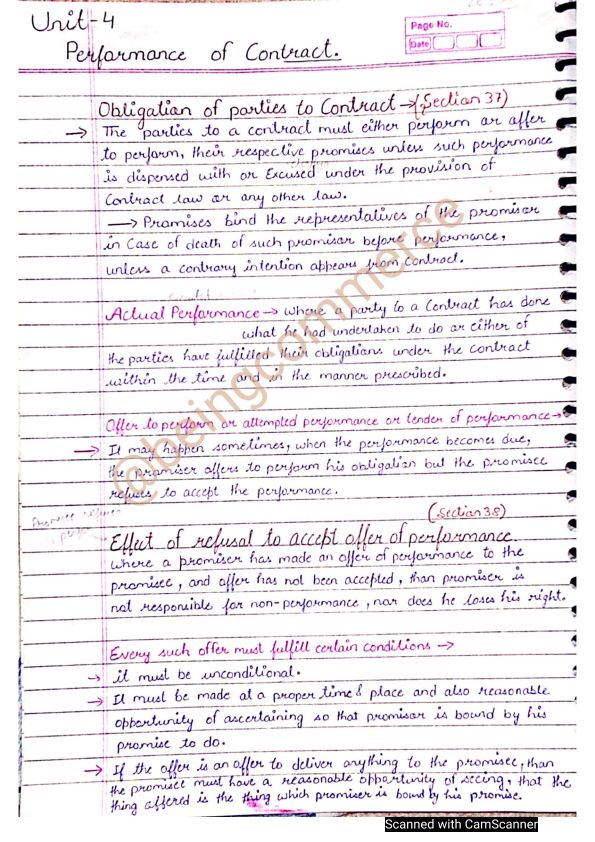 Unit-4
Page No.
Date
Performance of Contract.
Obligation of parties to Contract → (Section 37)
→ The parties to a contract must either perform or offer
to perform, their respective promises unless such performance
is dispensed with or Excused under the provision of
Contract law or any other law.
→ Promises bind the representatives of the promisor
in Case of death of such promisor before performance,
unless a contrary intention appears from contract.
Actual Performance → where a party to a Contract has done
what he had undertaken to do or either of
the parties have fulfilled their obligations under the contract
within the time and in the manner prescribed.
Offer to perform or attempted performance or tender of performance →
→ It may happen sometimes, when the performance becomes due,
the promiser offers to perform his obligation but the promisee
refuses to accept the performance.
(Section 38)
Effect of refusal to accept offer of performance
where a promiser has made an offer of performance to the
promisee, and offer has not been accepted, than promiser is
not responsible for non-performance, nor does he loses his right.
Every such offer must fulfill certain conditions →
→ it must be unconditional.
→ It must be made at a proper time & place and also reasonable
opportunity of ascertaining so that promisor is bound by his
promise to do.
→ If the offer is an offer to deliver anything to the promisee, than
the promisee must have a reasonable opportunity of seeing, that the
thing offered is the thing which promiser is bound by his promise.
@beingcommerce
Scanned with CamScanner